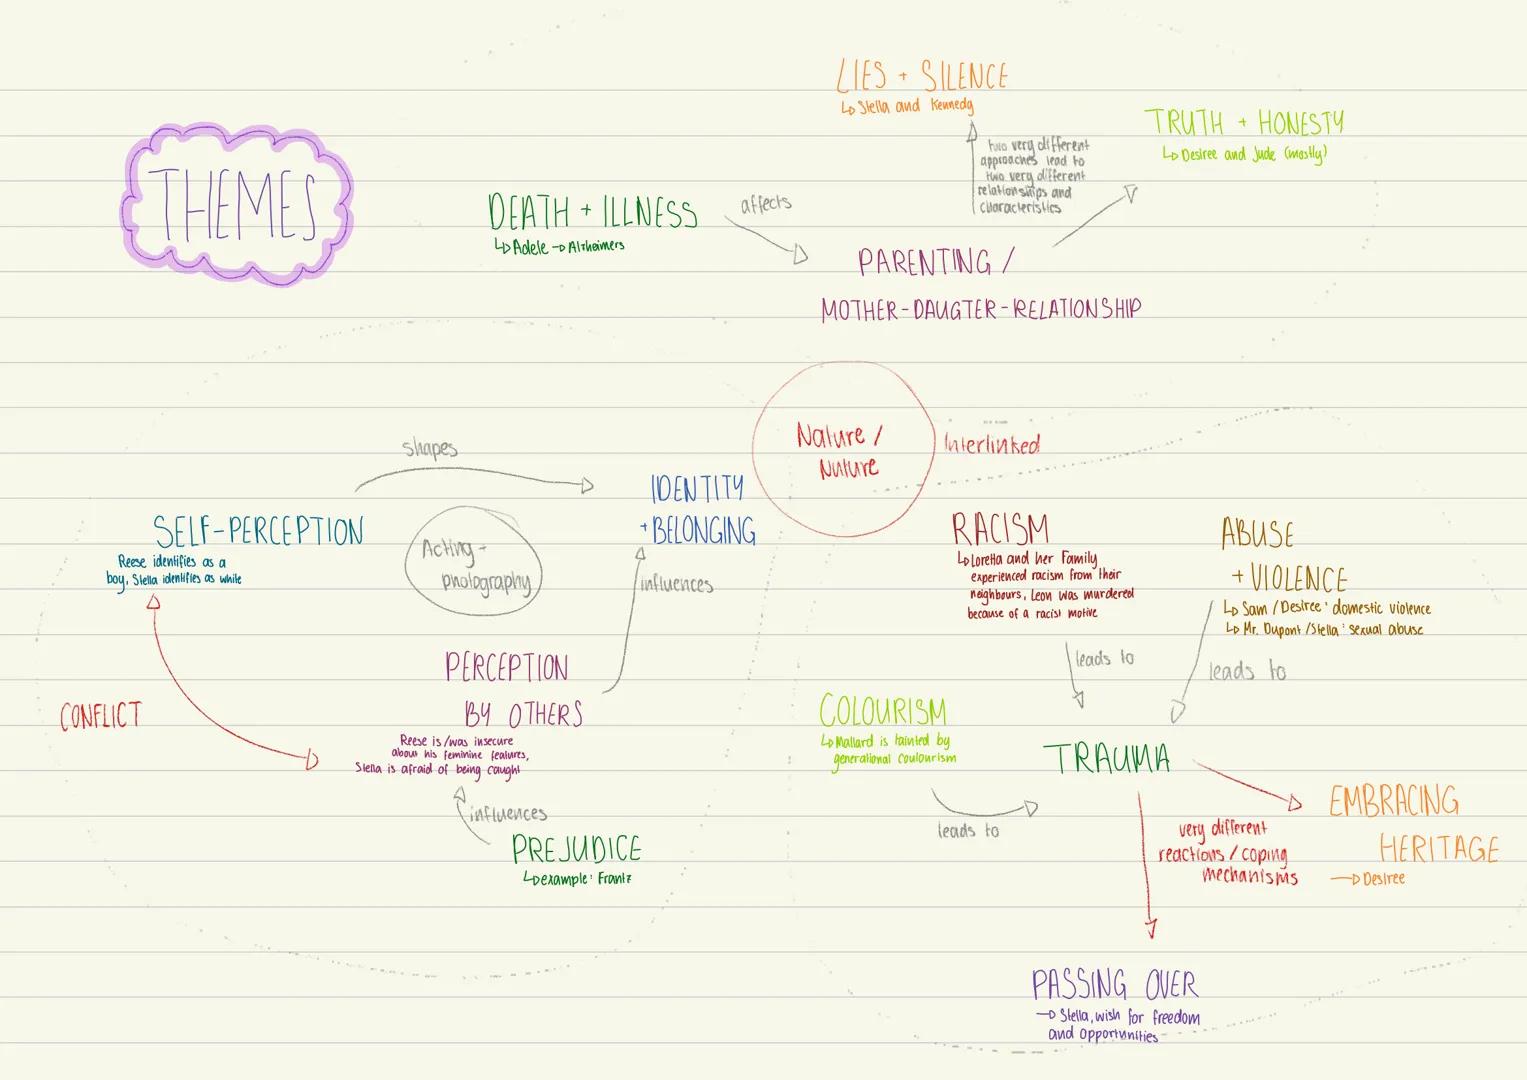 THEMES
LIES + SILENCE
↳ Stella and Kennedy
TRUTH + HONESTY
↳ Desiree and Jude (mostly)
two very different
approaches lead to
two very different
relationships and
characteristics
DEATH + ILLNESS
↳ Adele → Alzheimers
affects
PARENTING /
MOTHER-DAUGTER-RELATIONSHIP
Nature /
Nuture
Interlinked
shapes
SELF-PERCEPTION
Reese identifies as a
boy, Stella identifies as white
Acting +
photography
IDENTITY
+ BELONGING
influences
PERCEPTION
BY OTHERS
Reese is/was insecure
about his feminine features,
Stella is afraid of being caught
CONFLICT
influences
PREJUDICE
↳ example: Frantz
RACISM
↳ Loretta and her Family
experienced racism from their
neighbours, Leon was murdered
because of a racist motive
leads to
ABUSE
+ VIOLENCE
↳ Sam / Desiree: domestic violence
↳ Mr. Dupont / Stella: sexual abuse
leads to
COLOURISM
↳ Mallard is tainted by
generational coulourism
leads to
TRAUMA
very different
reactions / coping
mechanisms
EMBRACING
HERITAGE
→ Desiree
PASSING OVER
→ Stella, wish for freedom
and opportunities